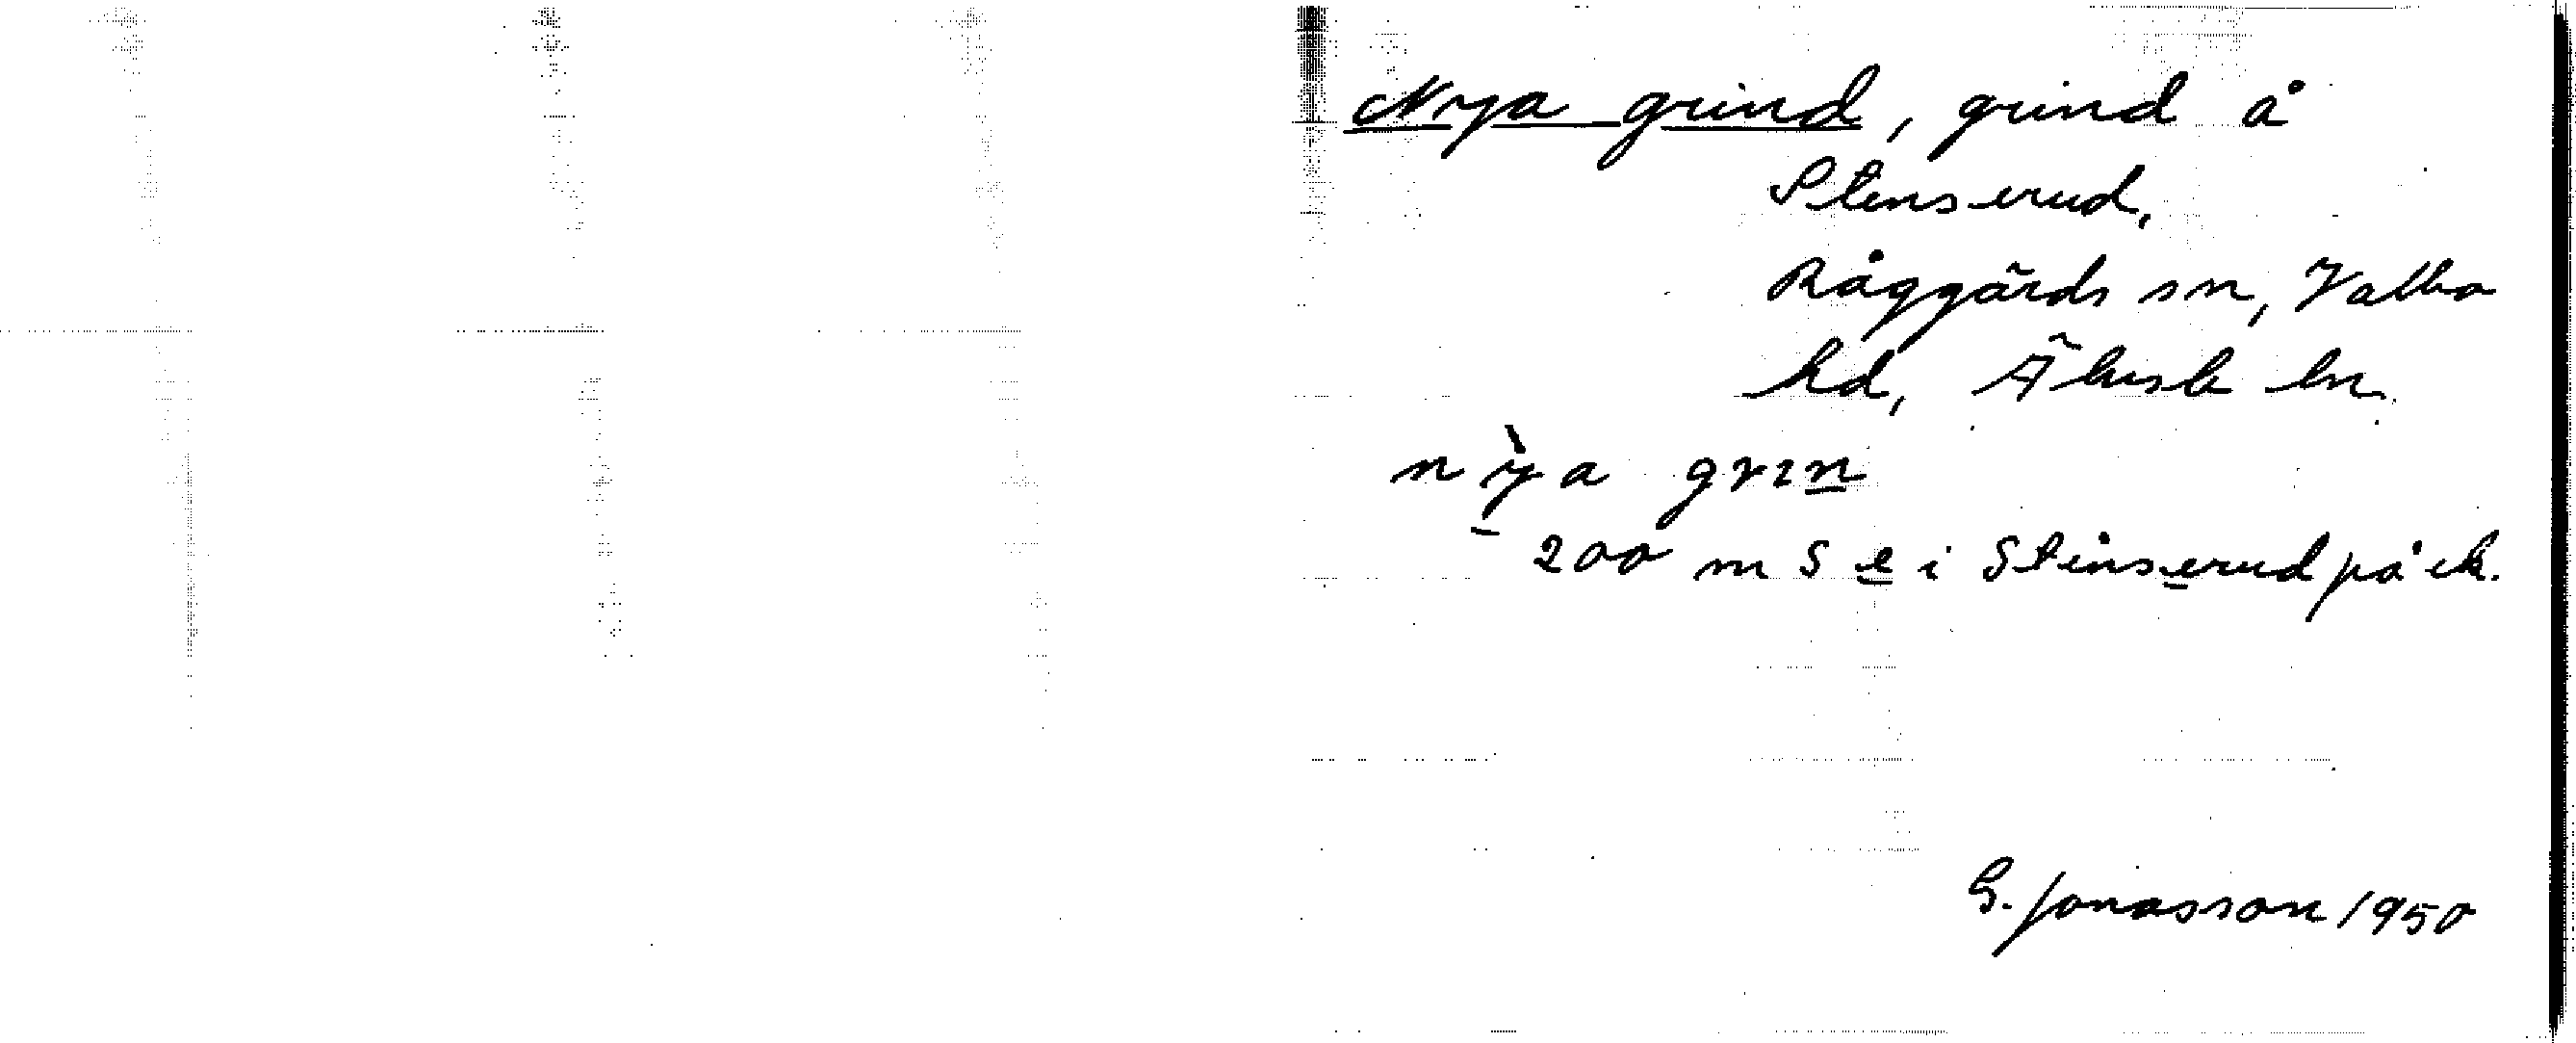 Nya grind, grind å
Stenserud,
Råggärds sn, Valbo
hd, Älvsb ln.
nỳa grın
200 m S e i Stenserud på ek.
G. Jonasson 1950